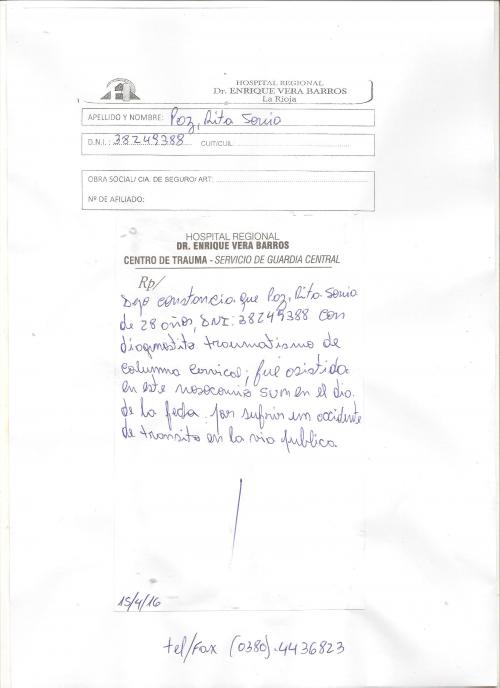 HOSPITAL REGIONAL
Dr. ENRIQUE VERA BARROS
La Rioja
APELLIDO Y NOMBRE: Paz, Rita Sonia
D.N.I.: 38249388 CUIT/CUIL:
OBRA SOCIAL/ CIA. DE SEGURO/ ART:
Nº DE AFILIADO:
HOSPITAL REGIONAL
DR. ENRIQUE VERA BARROS
CENTRO DE TRAUMA - SERVICIO DE GUARDIA CENTRAL
Rp/
Dejo constancia que Paz, Rita Sonia
de 28 años, DNI: 38249388 con
diagnostito traumatismo de
columna cervical; fué asistida
en este nosocomio en el dia
de la fecha por sufrir un accidente
de transito en la via publica
15/4/16
tel/Fax (0380).4436823